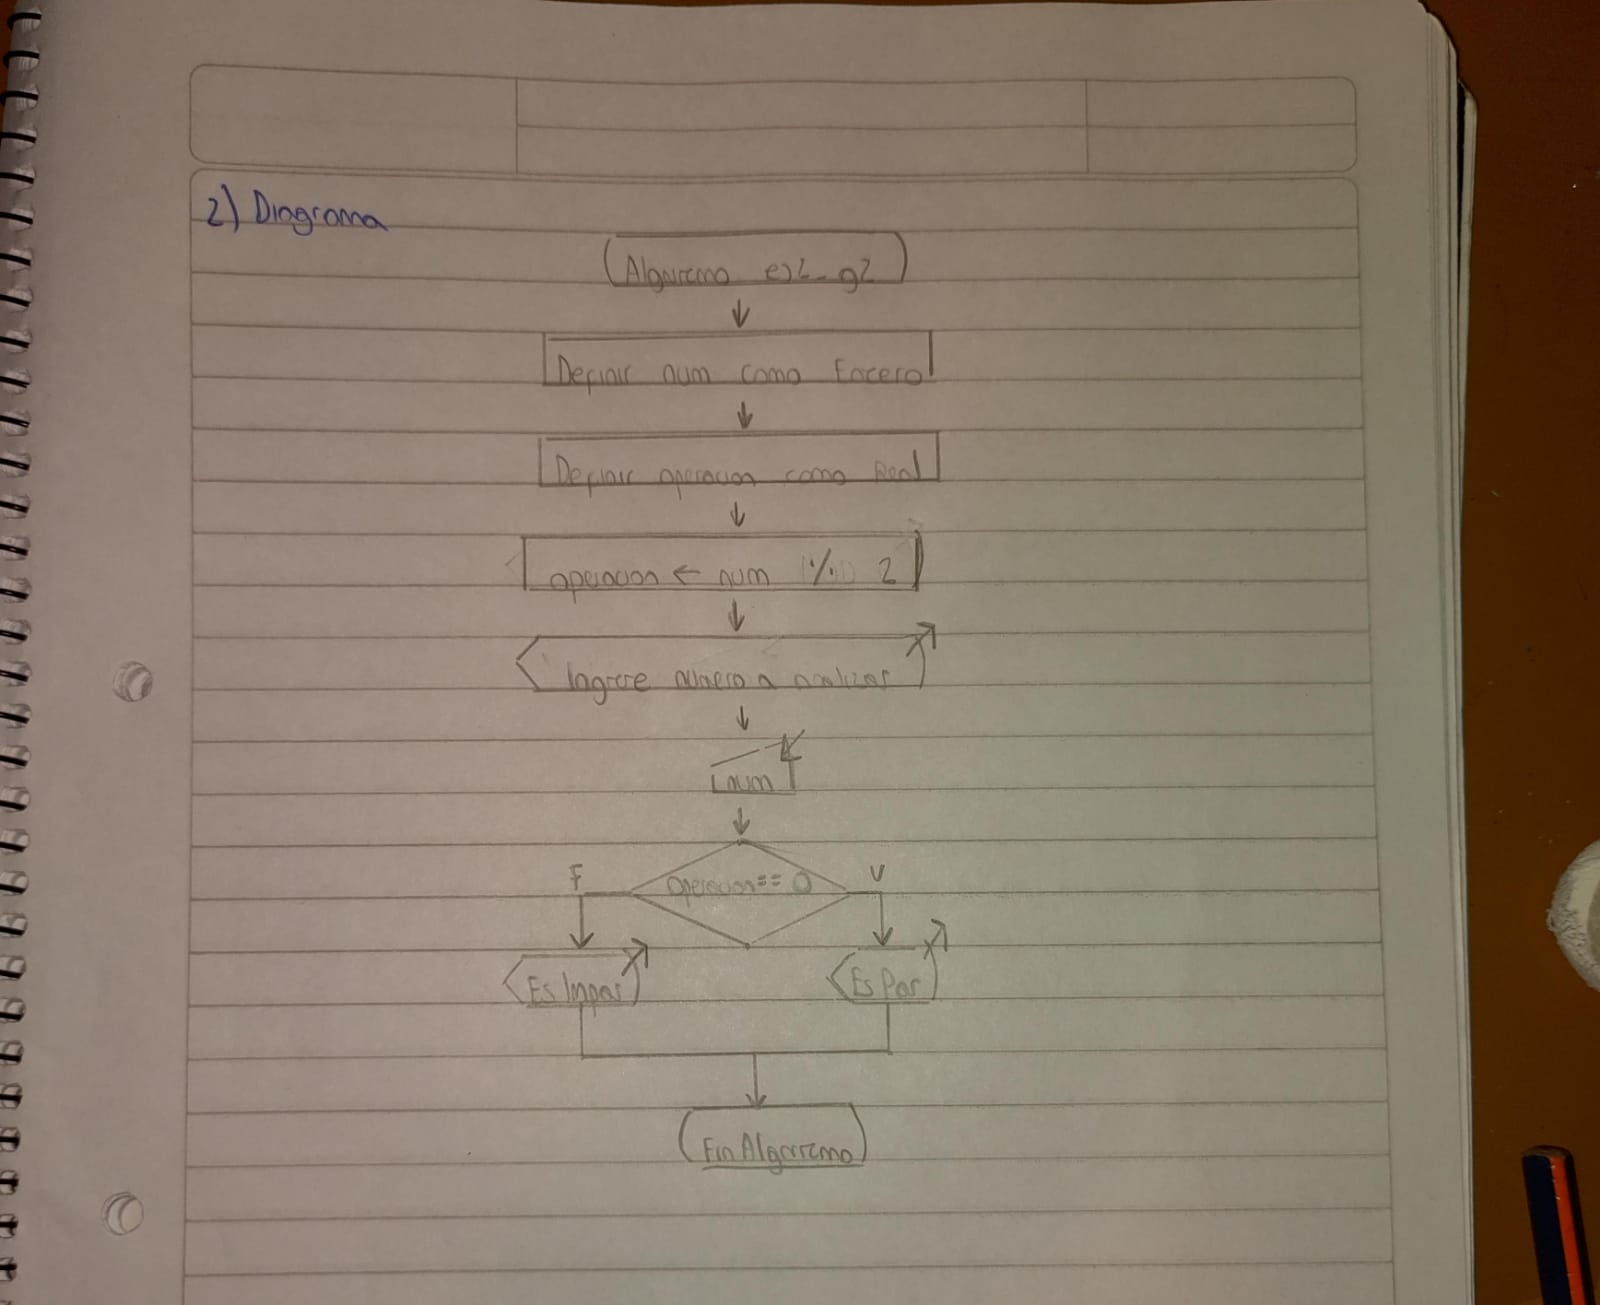 2) Diagrama
Algoritmo ej2_g2
Definir num como Entero
Definir operacion como Real
operacion ← num % 2
Ingrese numero a analizar
num
F
operacion == 0
V
Es Impar
Es Par
Fin Algoritmo